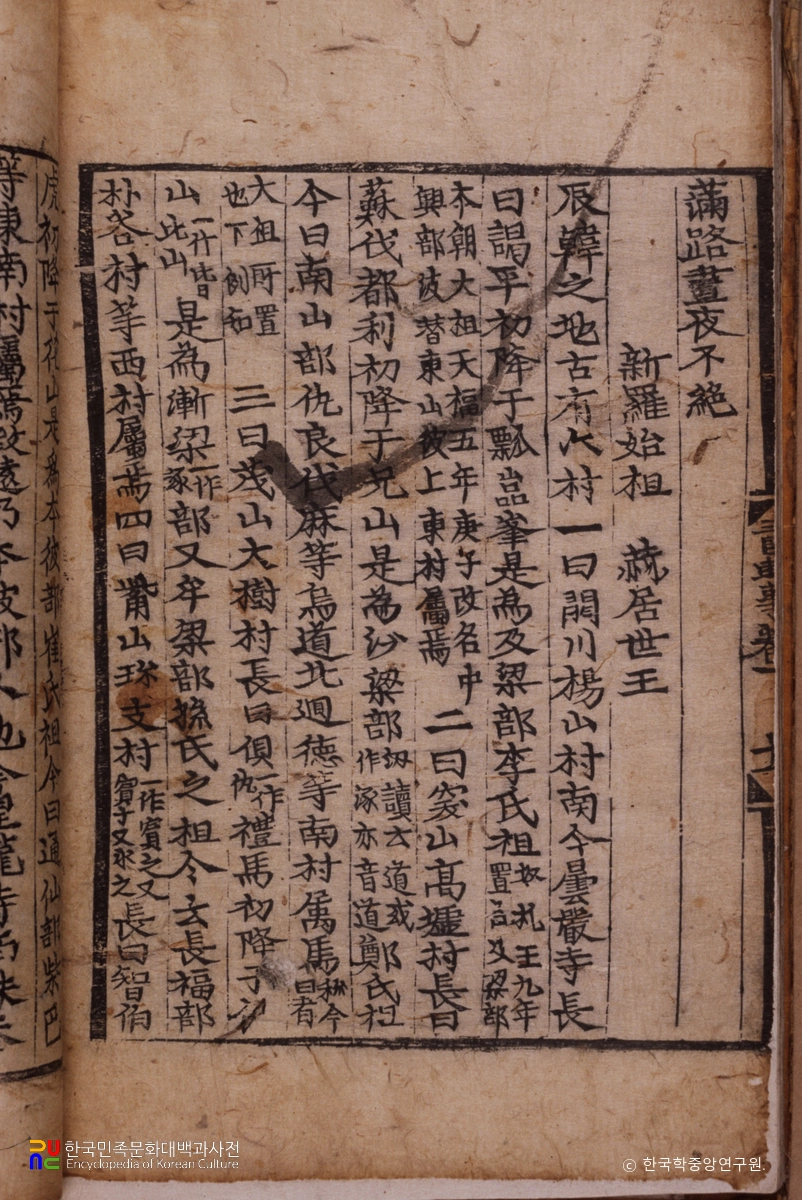 滿路晝夜不絶
新羅始祖 赫居世王
辰韓之地古有六村一曰閼川楊山村南今曇嚴寺長
曰謁平初降于瓢嵓峯是為及梁部李氏祖奴礼王九年置名及梁部
本朝太祖天福五年庚子改名中興部波替東山彼上東村屬焉 二曰突山高墟村長曰
蘇伐都利初降于兄山是為沙梁部梁讀云道或作涿亦音道鄭氏祖
今曰南山部仇良伐麻等烏道北迴德等南村属焉稱今曰者
太祖所置也下例知 三曰茂山大樹村長曰俱一作仇禮馬初降于伊
山一作皆比山是為漸梁一作涿部又牟梁部孫氏之祖今云長福部
朴谷村等西村屬焉四曰觜山珍支村一作賓之又賓子又氷之長曰智伯
虎初降于花山是為本彼部崔氏祖今曰通仙部柴巴
等東南村屬焉致遠乃本彼部人也今皇龍寺南味呑
三國遺事卷一
十
한국민족문화대백과사전
Encyclopedia of Korean Culture
© 한국학중앙연구원